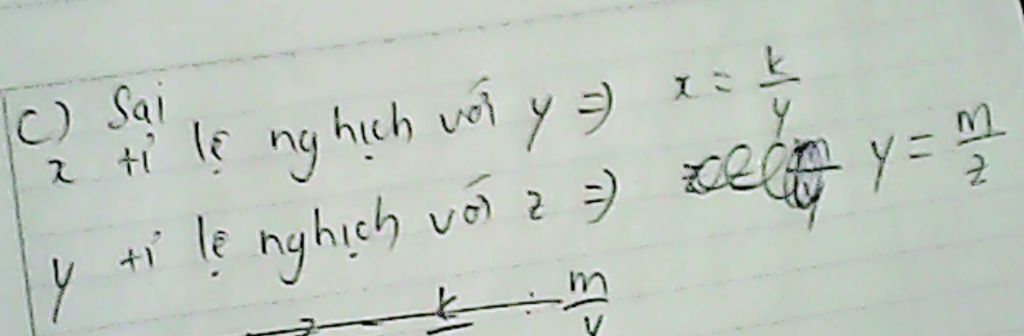 c) Sai
x tỉ lệ nghịch với y => x = k/y
y tỉ lệ nghịch với z => y = m/z
k/ : m/y